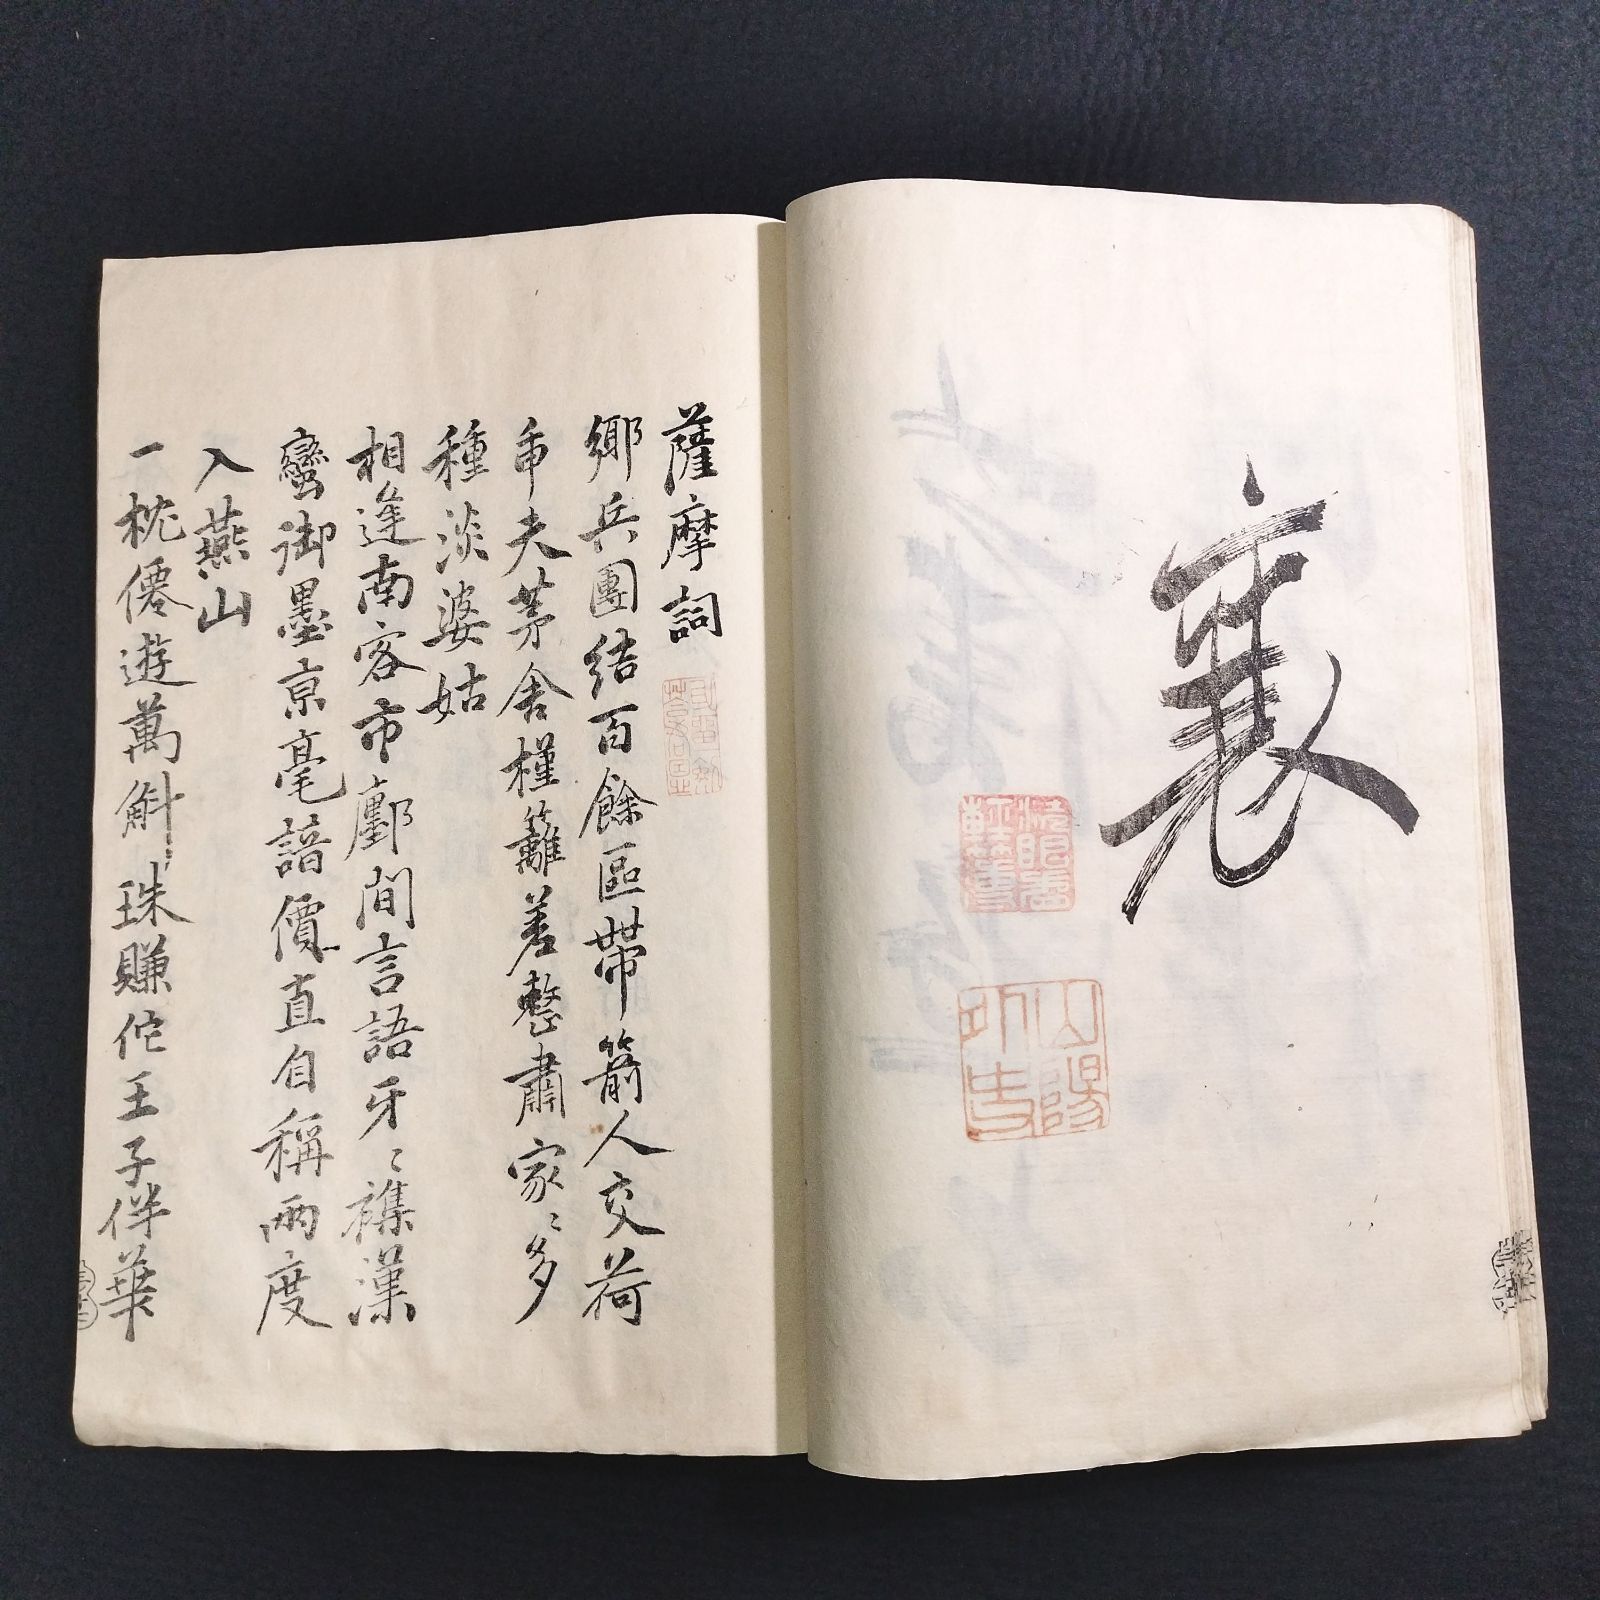 襄
山陽外史
薩摩詞
鄉兵團結百餘區帶箭人交荷
帚夫茅舍槿籬差整肅家〻多
種淡婆姑
相逢南客市鄽間言語牙〻襍漢
蠻御墨京毫諳價直自稱兩度
入燕山
一枕僊遊萬斛珠賺佗王子伴華